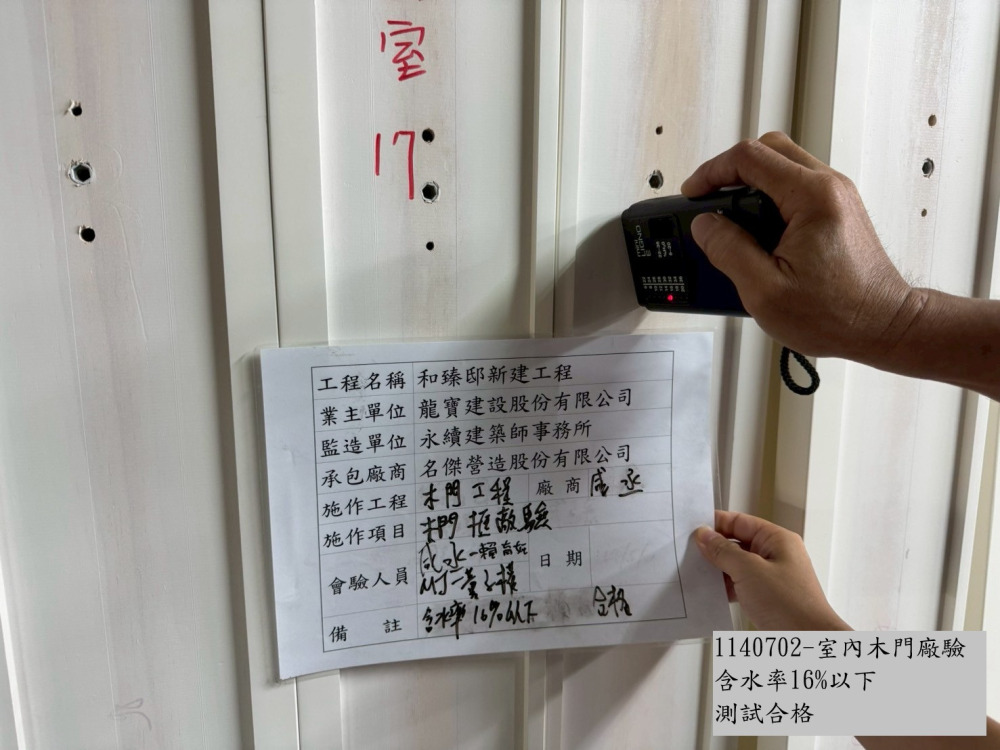 室
17
工程名稱 和臻邸新建工程
業主單位 龍寶建設股份有限公司
監造單位 永續建築師事務所
承包廠商 名傑營造股份有限公司
施作工程 木門工程 廠商 成丞
施作項目 木門框廠驗
會驗人員 日期
備註 含水率16%以下 合格
1140702-室內木門廠驗
含水率16%以下
測試合格